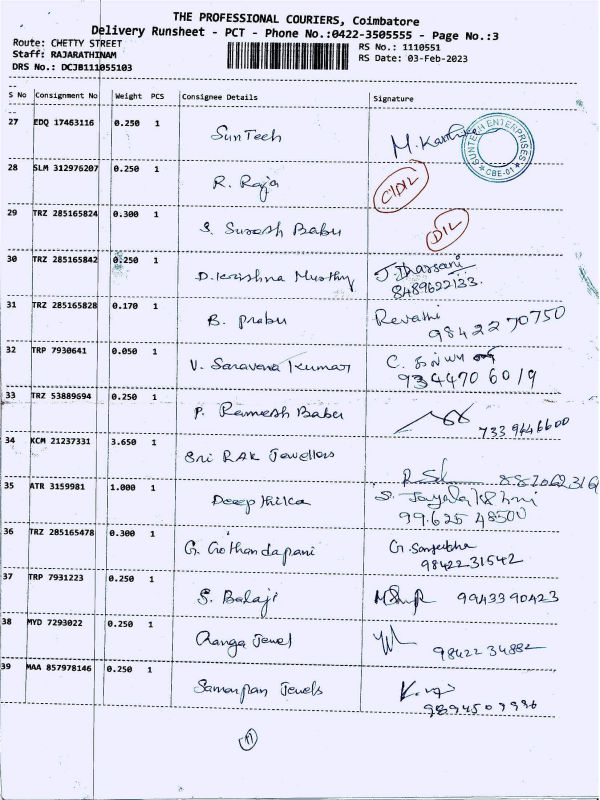 THE PROFESSIONAL COURIERS, Coimbatore
Delivery Runsheet - PCT - Phone No.:0422-3505555 - Page No.:3
Route: CHETTY STREET
Staff: RAJARATHINAM
DRS No.: DCJB111055103
RS No.: 1110551
RS Date: 03-Feb-2023
S No Consignment No Weight PCS Consignee Details Signature
27 EDQ 17463116 0.250 1 SunTech M. Karthik
SUNTECH ENTERPRISES CBE-01
28 SLM 312976207 0.250 1 R. Raja
29 TRZ 285165824 0.300 1 S. Suresh Babu D/L
30 TRZ 285165842 0.250 1 D. Krishna Murthy J. Dharsani
8489622133.
31 TRZ 285165828 0.170 1 B. Prabu Revathi
98422 70750
32 TRP 7930641 0.050 1 V. Saravana Kumar C.
934470 6019
33 TRZ 53889694 0.250 1 P. Ramesh Babu
733 9446600
34 KCM 21237331 3.650 1 Sri RAK Jewellers
35 ATR 3159981 1.000 1 Deepthika S. Jayalakshmi
99625 48500
36 TRZ 285165478 0.300 1 G. Gothandapani G. Sanjeibha
98422 31542
37 TRP 7931223 0.250 1 S. Balaji 9943390423
38 MYD 7293022 0.250 1 Ranga Jewel
98422 34882
39 MAA 857978146 0.250 1 Samarpan Jewels
9894509996
11